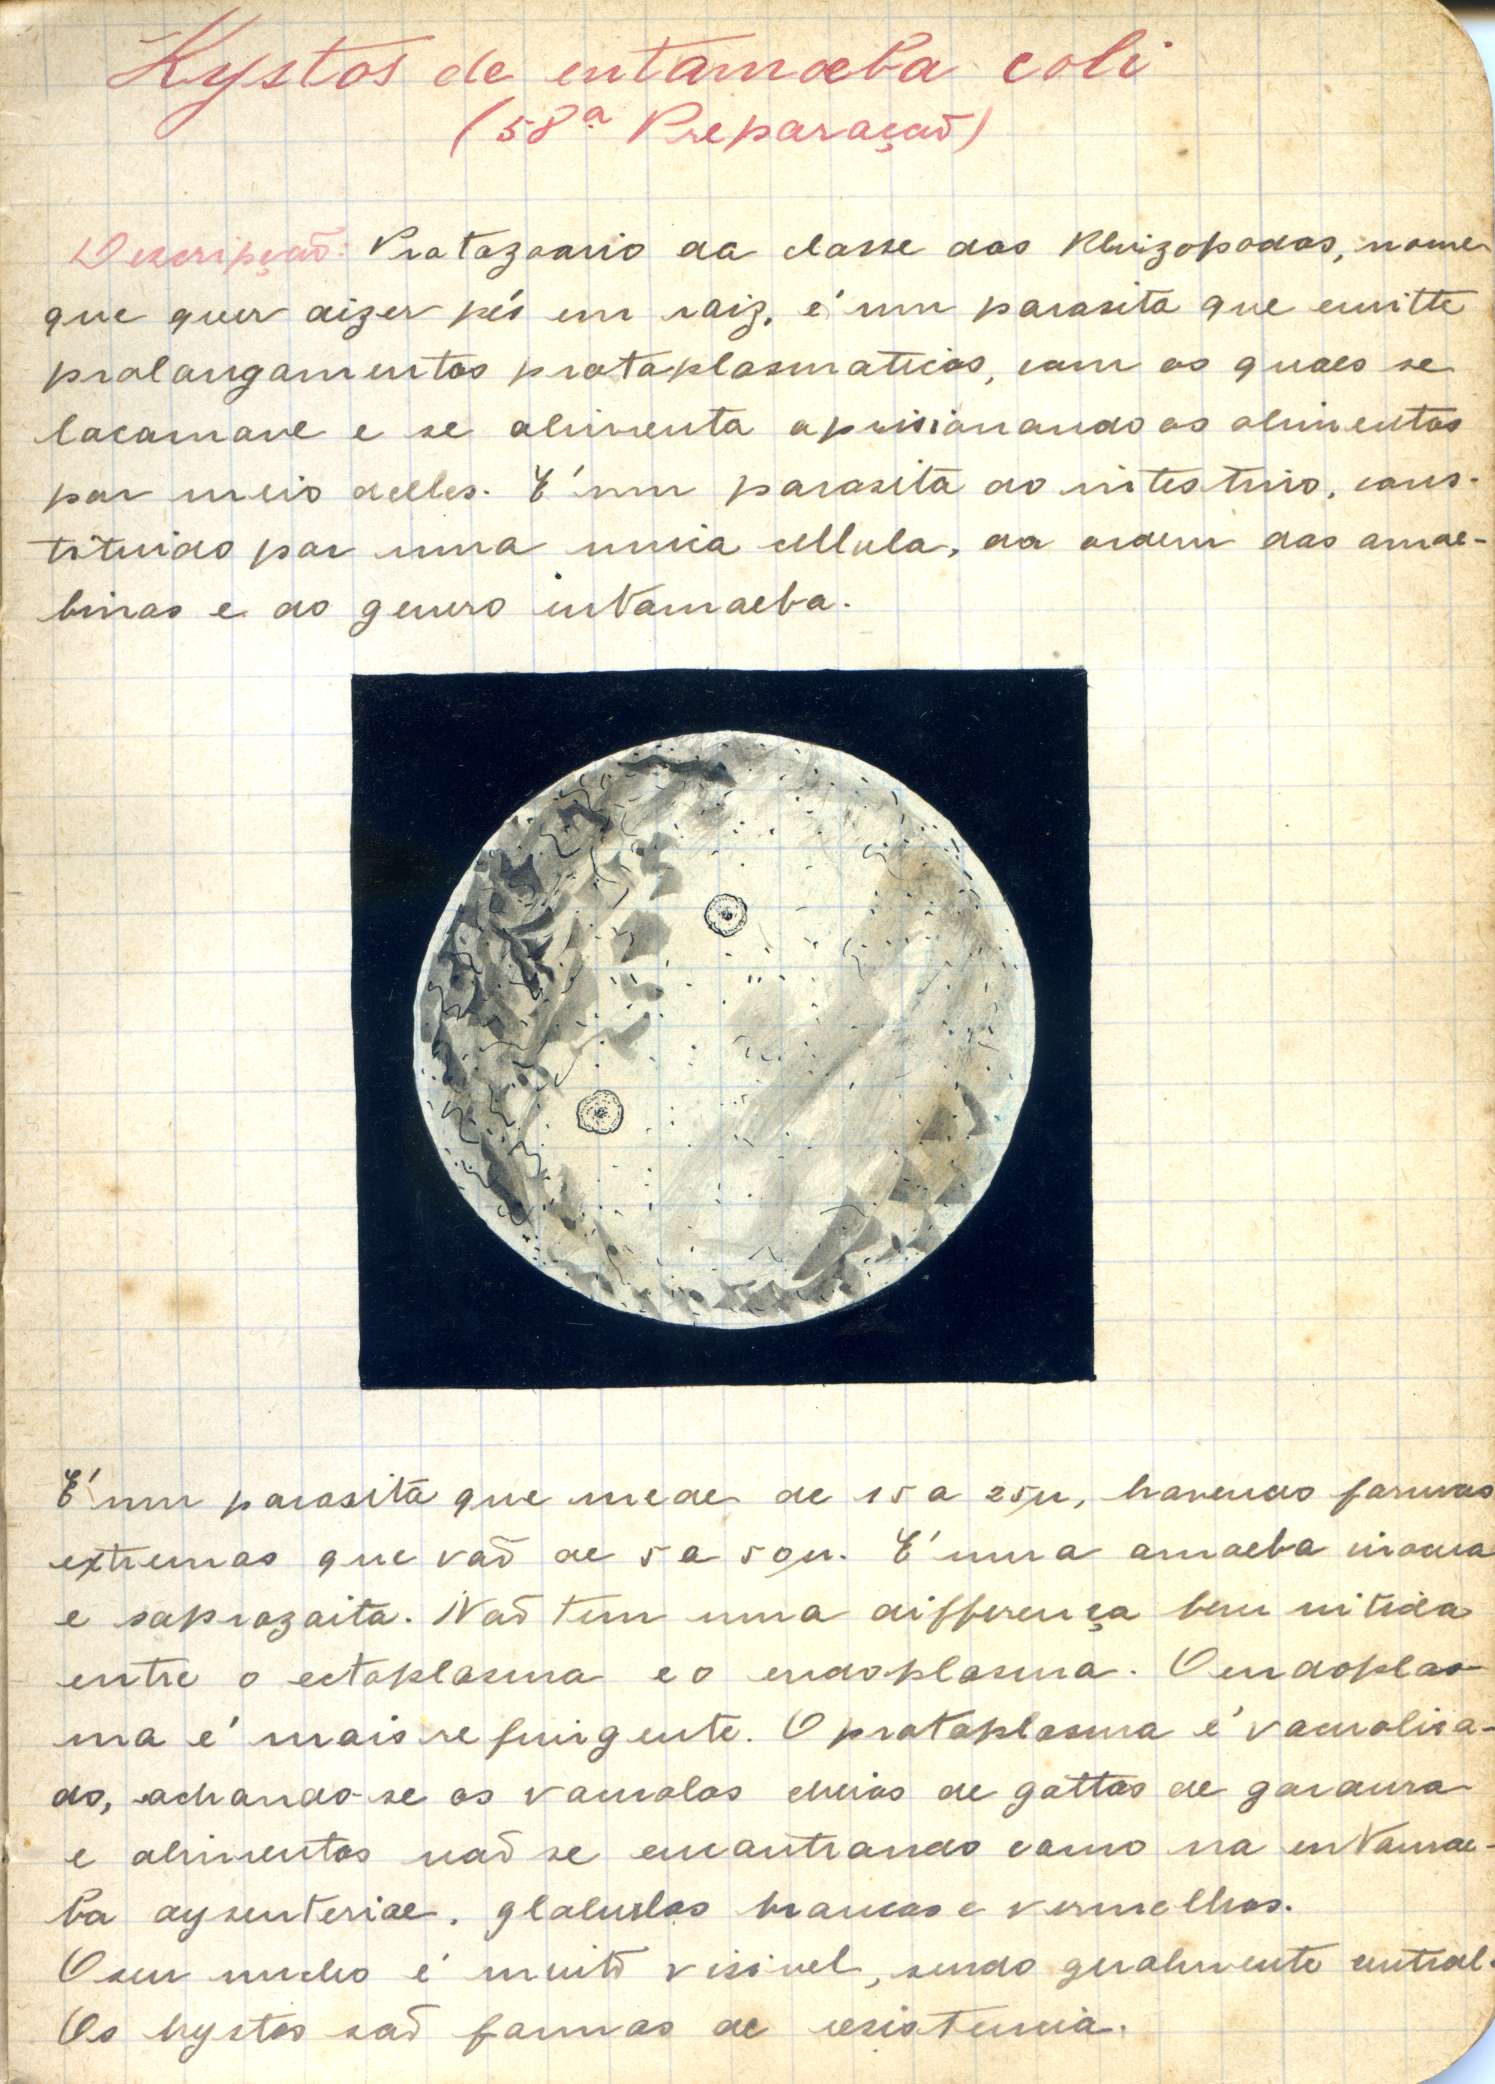 Kystos de entamoeba coli
(58ª Preparação)
Descripção: Protozoario da classe dos Rhizopodos, nome
que quer dizer pés em raiz, é um parasita que emitte
prolongamentos protoplasmaticos, com os quaes se
locomove e se alimenta aprisionando os alimentos
por meio delles. É um parasita do intestino, cons-
tituido por uma unica cellula, da ordem das amoe-
binas e do genero entamoeba.
É um parasita que mede de 15 a 25µ, havendo formas
extremas que vão de 5 a 50µ. É uma amoeba inocua
e saprozoita. Não tem uma differença bem nitida
entre o ectoplasma e o endoplasma. O endoplas-
ma é mais refringente. O protoplasma é vacuolisa-
do, achando-se os vacuolos cheios de gottas de gordura
e alimentos não se encontrando como na entamoe-
ba dysenteriae, globulos brancos e vermelhos.
O seu nucleo é muito visivel, sendo geralmente central.
Os kystos são formas de resistencia.